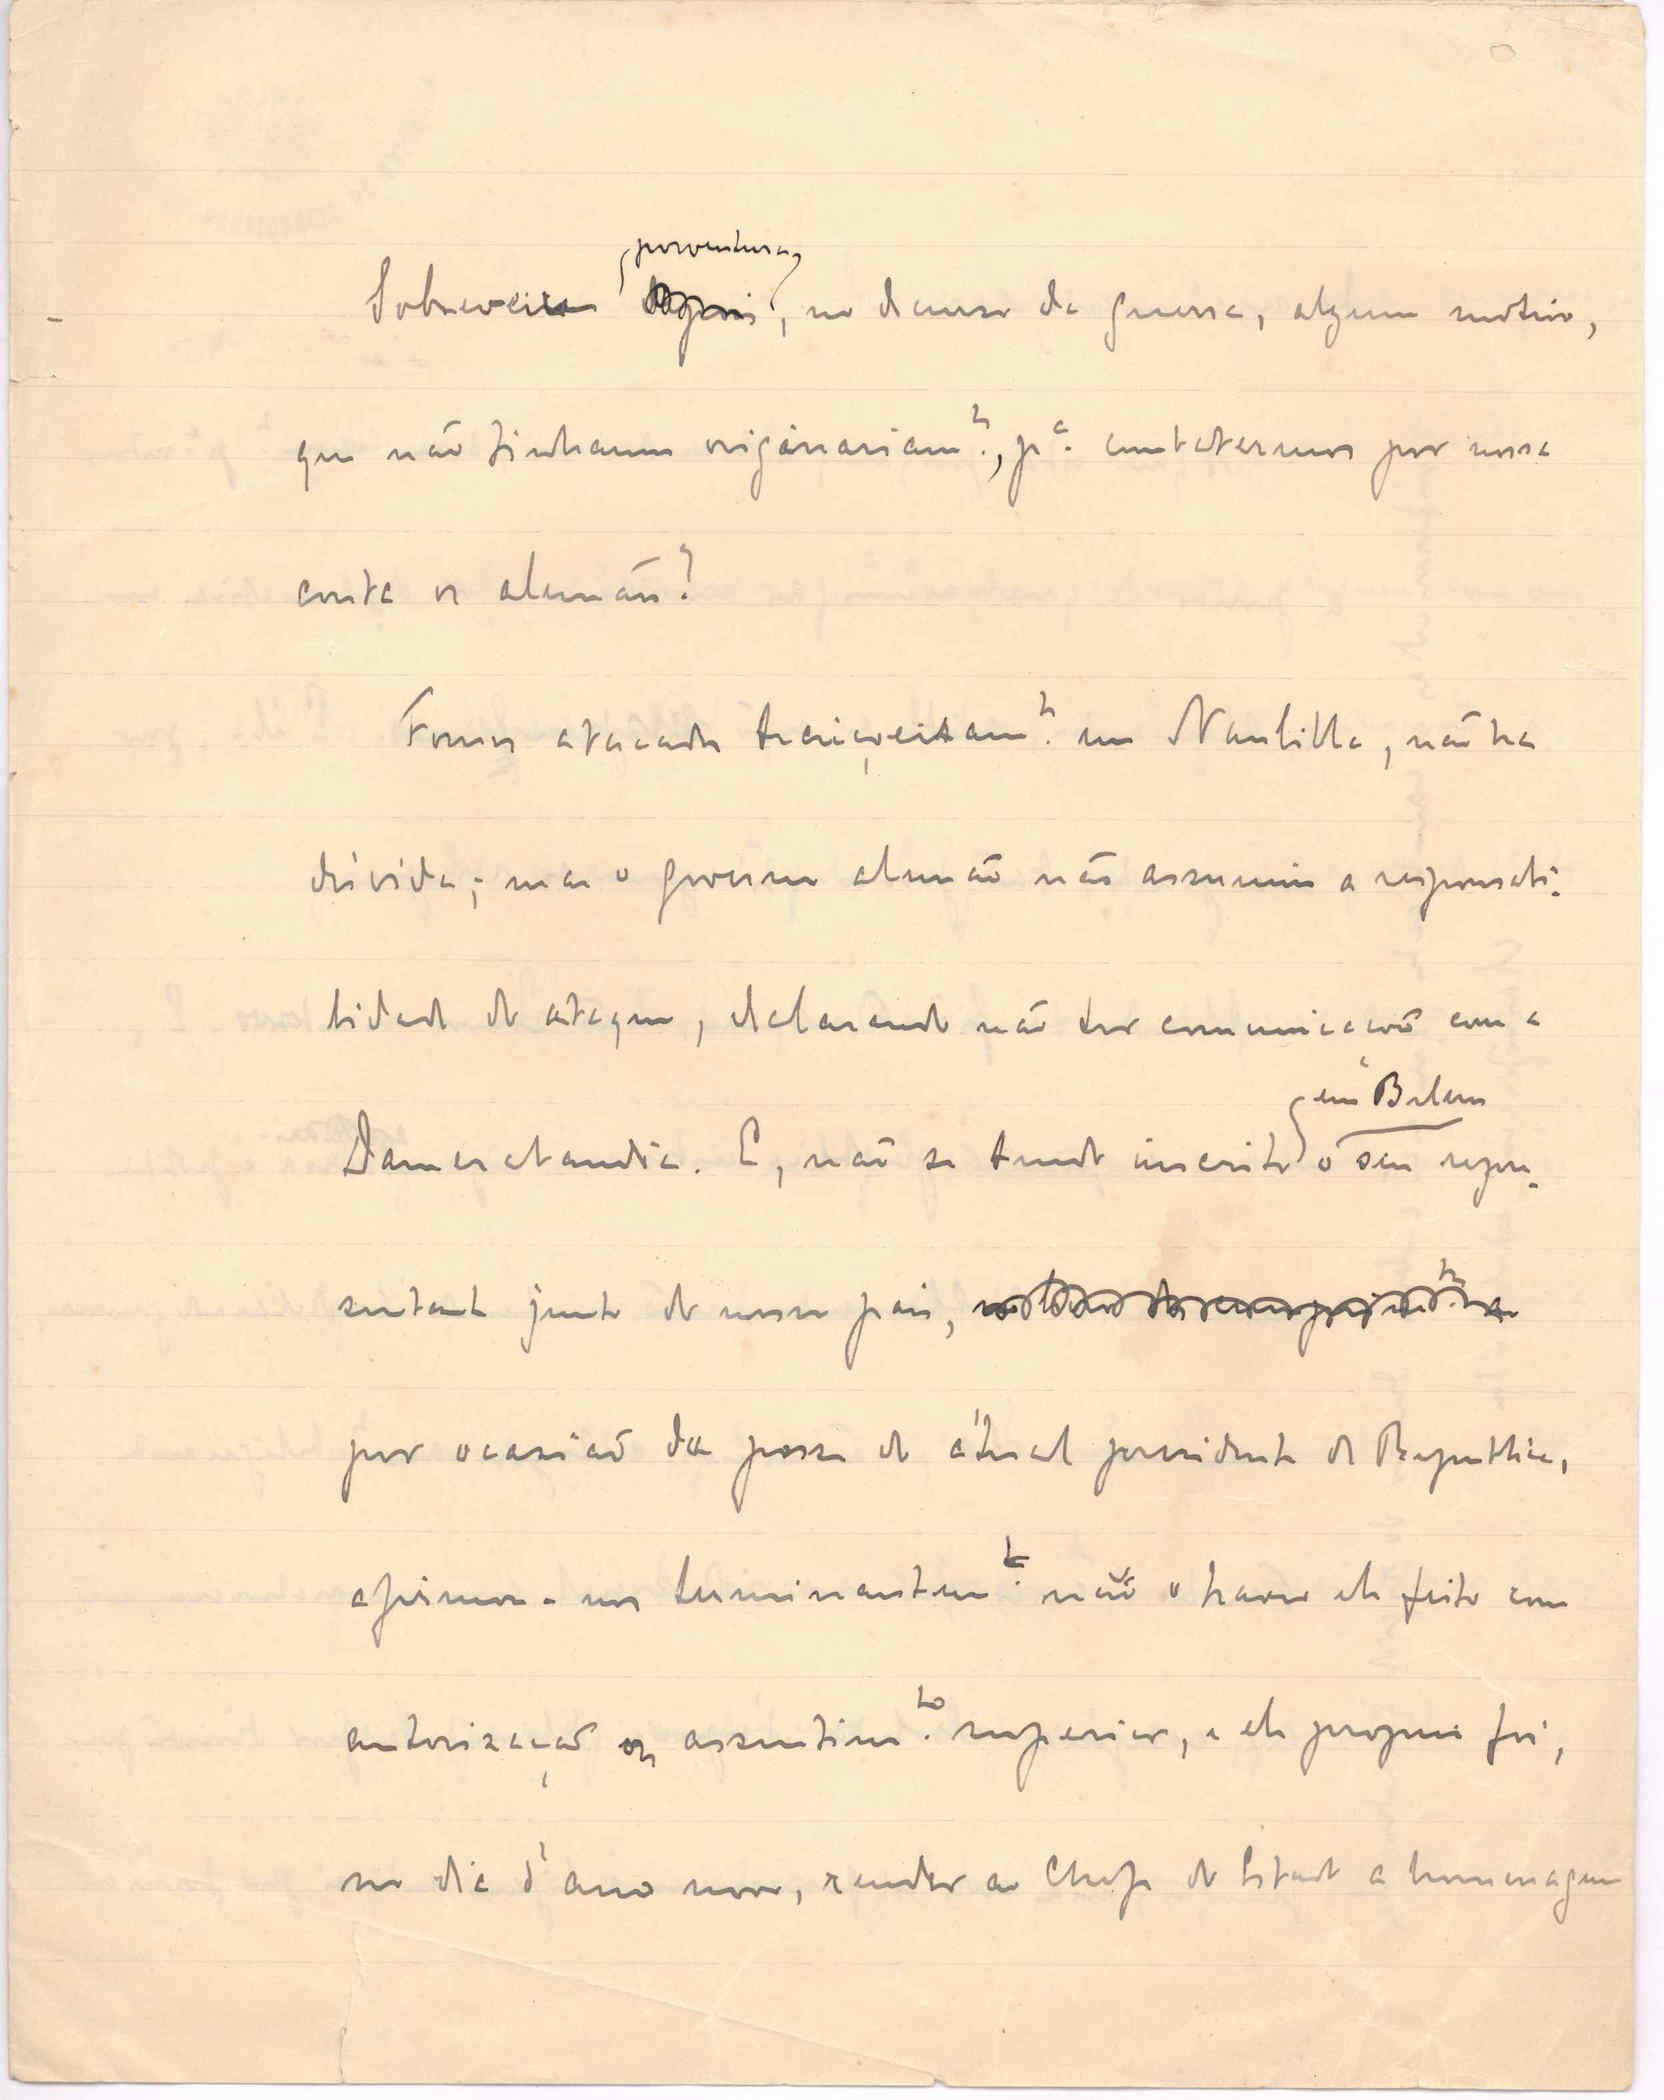 Sobreveiu porventura, no decurso da guerra, algum motivo,
que não tinhamos originariam.te, p.a combatermos por nossa
conta os alemães?
Fomos atacados traiçoeiram.te em Naulilla, não ha
dúvida; mas o governo alemão não assumiu a responsabi-
lidade do ataque, declarando não ter comunicação com a
Damaralandia. E, não se tendo inscrito em Belem o seu repre-
sentante junto do nosso pais,
por ocasião da posse do átual presidente da Republica,
afirmou-nos terminantem.te não o haver ele feito com
autorização ou assentim.to superior, e ele proprio foi,
no dia d'ano novo, render ao Chefe do Estado a homenagem